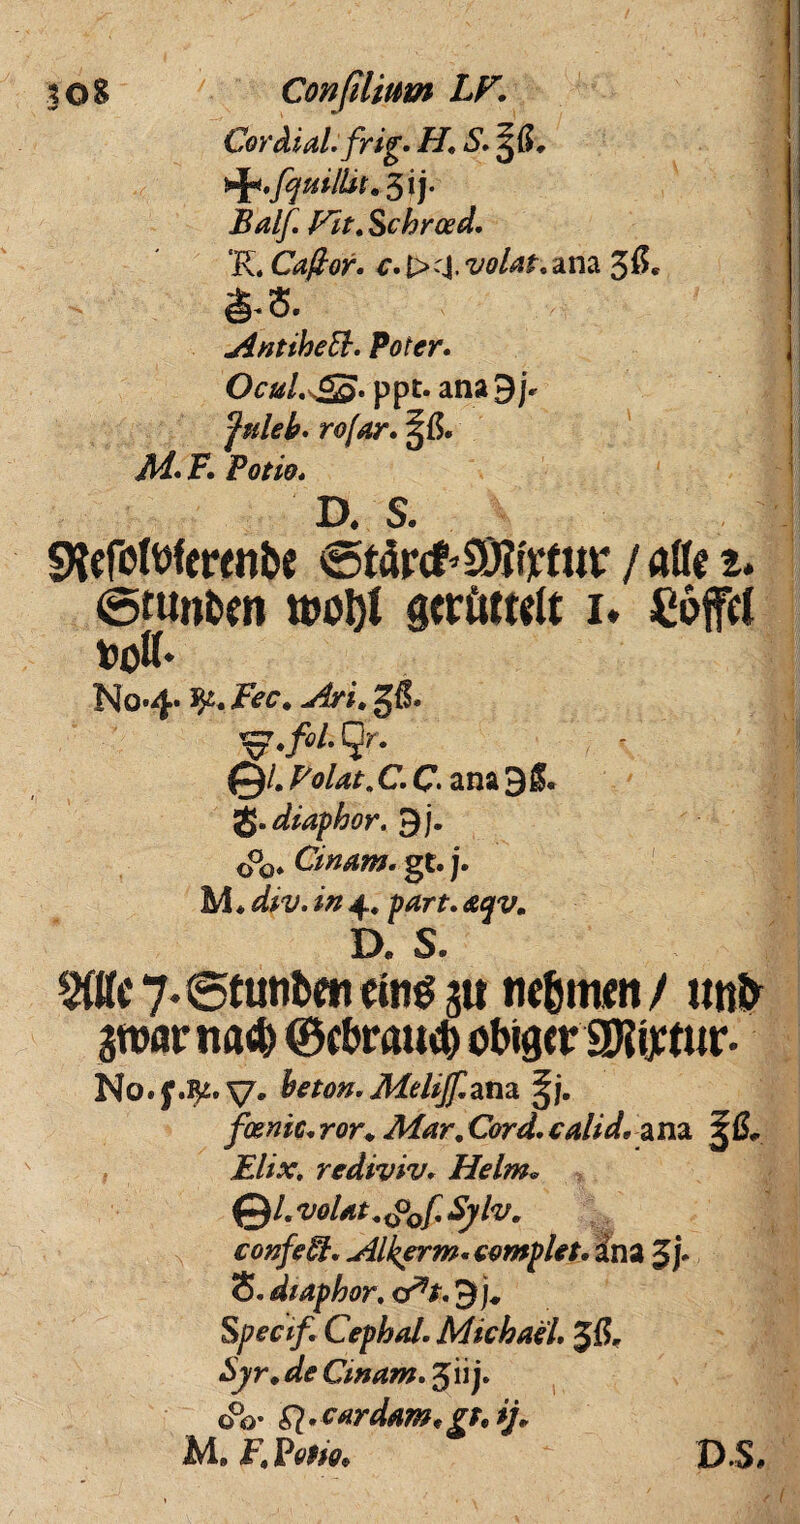 308 Conſilium LV.
Cordial. frig. H. S. ℥ß.
🜊. ſquillit. ʒij.
Balſ. Vit. Schrœd.
R. Caſtor. c. volat. ana ʒß.
Antihect. Poter.
Ocul. ♋. ppt. ana ℈j.
Juleb. roſar. ℥ß.
M. F. Potio.
D. S.
Reſolvierende Stärck-Mixtur / alle 2.
Stunden wohl gerüttelt 1. Löffel
voll.
No. 4. ℞. Fec. Ari. ʒß.
🜿. ſol. Qr.
🜔l. Volat. C. C. ana ℈ß.
♁. diaphor. ℈j.
🝆. Cinam. gt. j.
M. div. in 4. part. æqv.
D. S.
Alle 7. Stunden eins zu nehmen / und
zwar nach Gebrauch obiger Mixtur.
No. 5. ℞. ▽. beton. Meliſſ. ana ℥j.
fœnic. ror. Mar. Cord. calid. ana ℥ß.
Elix. rediviv. Helm.
🜔l. volat. 🝆ſ. Sylv.
confect. Alkerm. complet. ana ʒj.
♁. diaphor. ♂t. ℈j.
Specif. Cephal. Michaël. ʒß.
Syr. de Cinam. ʒiij.
🝆. cardam. gt. ij.
M. F. Potio. D.S.